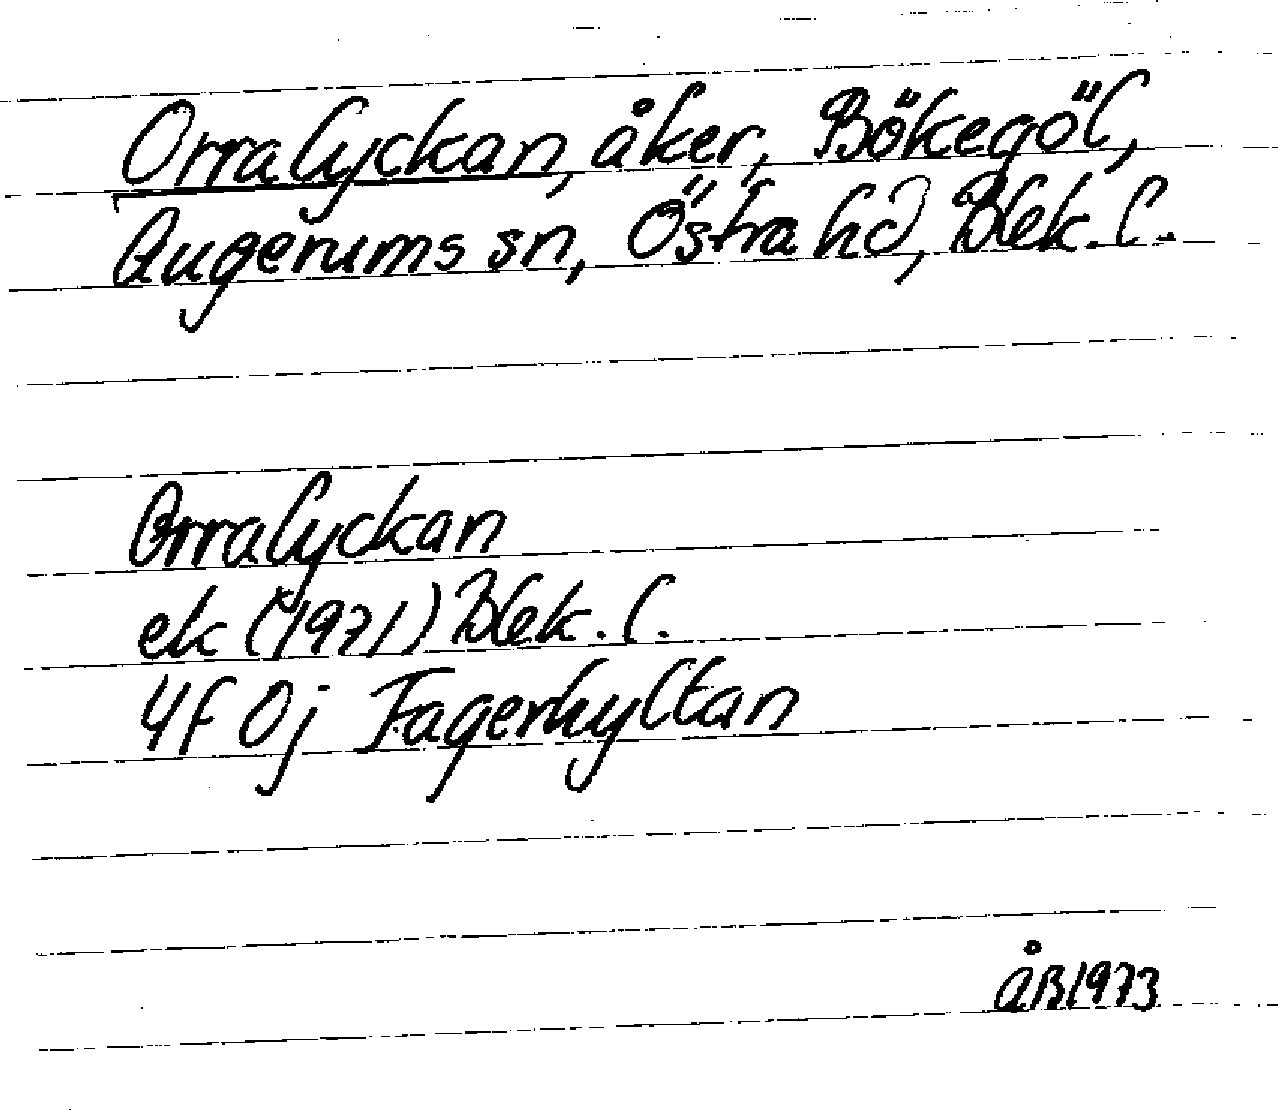 Orralyckan, åker, Bökegöl,
Augerums sn, Östra hd, Blek. l.
Orralyckan
ek (1971) Blek. l.
4f 0j Fagerhyltan
ÅB 1973